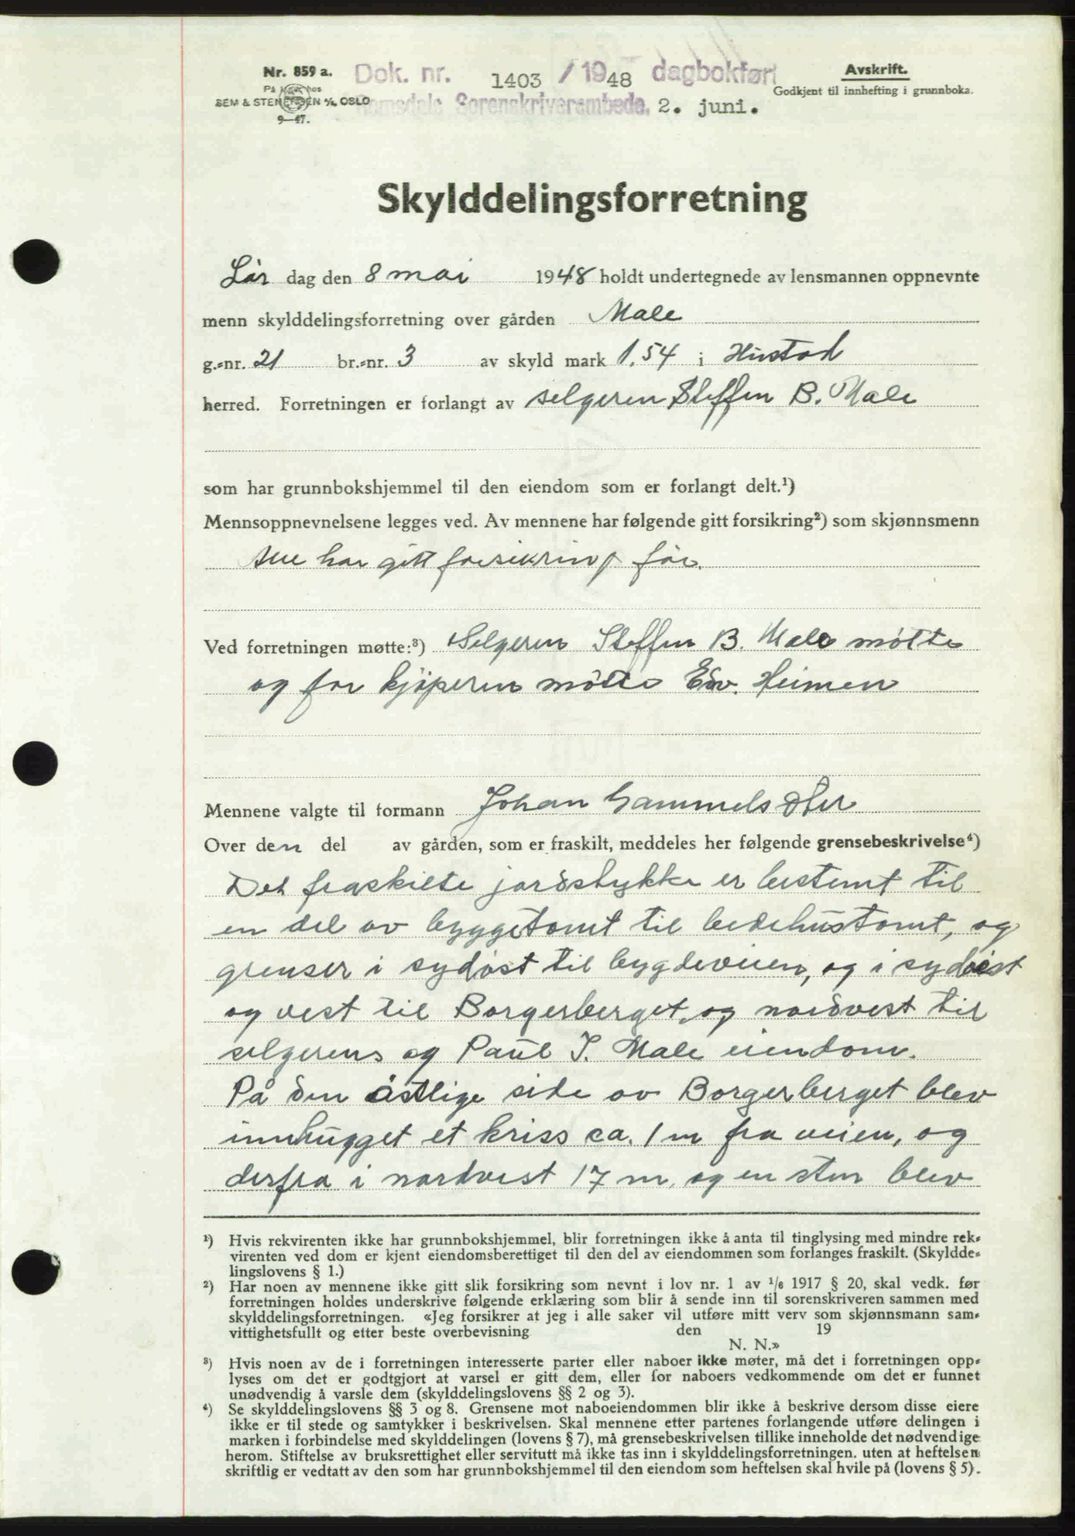 Nr. 859 a.
På lager hos
SEM & STENERSEN A/S, OSLO
9—47.
Dok. nr. 1403 / 1948 dagbokført
Romsdals Sorenskriverembede, 2. juni.
Avskrift.
Godkjent til innhefting i grunnboka.
Skylddelingsforretning
Lør dag den 8 mai 1948 holdt undertegnede av lensmannen oppnevnte
menn skylddelingsforretning over gården Male
g.=nr. 21 br.=nr. 3 av skyld mark 1.54 i Hustad
herred. Forretningen er forlangt av selgeren Steffen B. Male
som har grunnbokshjemmel til den eiendom som er forlangt delt.¹)
Mennsoppnevnelsene legges ved. Av mennene har følgende gitt forsikring²) som skjønnsmenn
Alle har gitt forsikring før.
Ved forretningen møtte:³) Selgeren Steffen B. Male møtte
og for kjøperen møtte Edv. Heimen
Mennene valgte til formann Johan Gammelsæter
Over den del av gården, som er fraskilt, meddeles her følgende grensebeskrivelse⁴)
Det fraskilte jordstykke er bestemt til
en del av byggetomt til bedehustomt, og
grenser i sydøst til bygdeveien, og i sydvest
og vest til Borgerberget, og nordvest til
selgerens og Paul J. Male eiendom.
På den østlige side av Borgerberget blev
innhugget et kriss ca. 1 m fra veien, og
derfra i nordvest 17 m, og en sten blev
¹) Hvis rekvirenten ikke har grunnbokshjemmel, blir forretningen ikke å anta til tinglysing med mindre rek=
virenten ved dom er kjent eiendomsberettiget til den del av eiendommen som forlanges fraskilt. (Skyldde=
lingslovens § 1.)
²) Har noen av mennene ikke gitt slik forsikring som nevnt i lov nr. 1 av 1/6 1917 § 20, skal vedk. før
forretningen holdes underskrive følgende erklæring som blir å sende inn til sorenskriveren sammen med
skylddelingsforretningen. «Jeg forsikrer at jeg i alle saker vil utføre mitt verv som skjønnsmann sam=
vittighetsfullt og etter beste overbevisning den 19
N. N.»
³) Hvis noen av de i forretningen interesserte parter eller naboer ikke møter, må det i forretningen opp=
lyses om det er godtgjort at varsel er gitt dem, eller for naboers vedkommende om det er funnet
unødvendig å varsle dem (skylddelingslovens §§ 2 og 3).
⁴) Se skylddelingslovens §§ 3 og 8. Grensene mot naboeiendommen blir ikke å beskrive dersom disse eiere
ikke er til stede og samtykker i beskrivelsen. Skal mennene etter partenes forlangende utføre delingen i
marken i forbindelse med skylddelingen (lovens § 7), må grensebeskrivelsen tillike inneholde det nødvendige
herom. Stiftelse av bruksrettighet eller servitutt må ikke tas inn i skylddelingsforretningen, uten at heftelsen
skriftlig er vedtatt av den som har grunnbokshjemmel til den eiendom som heftelsen skal hvile på (lovens § 5).